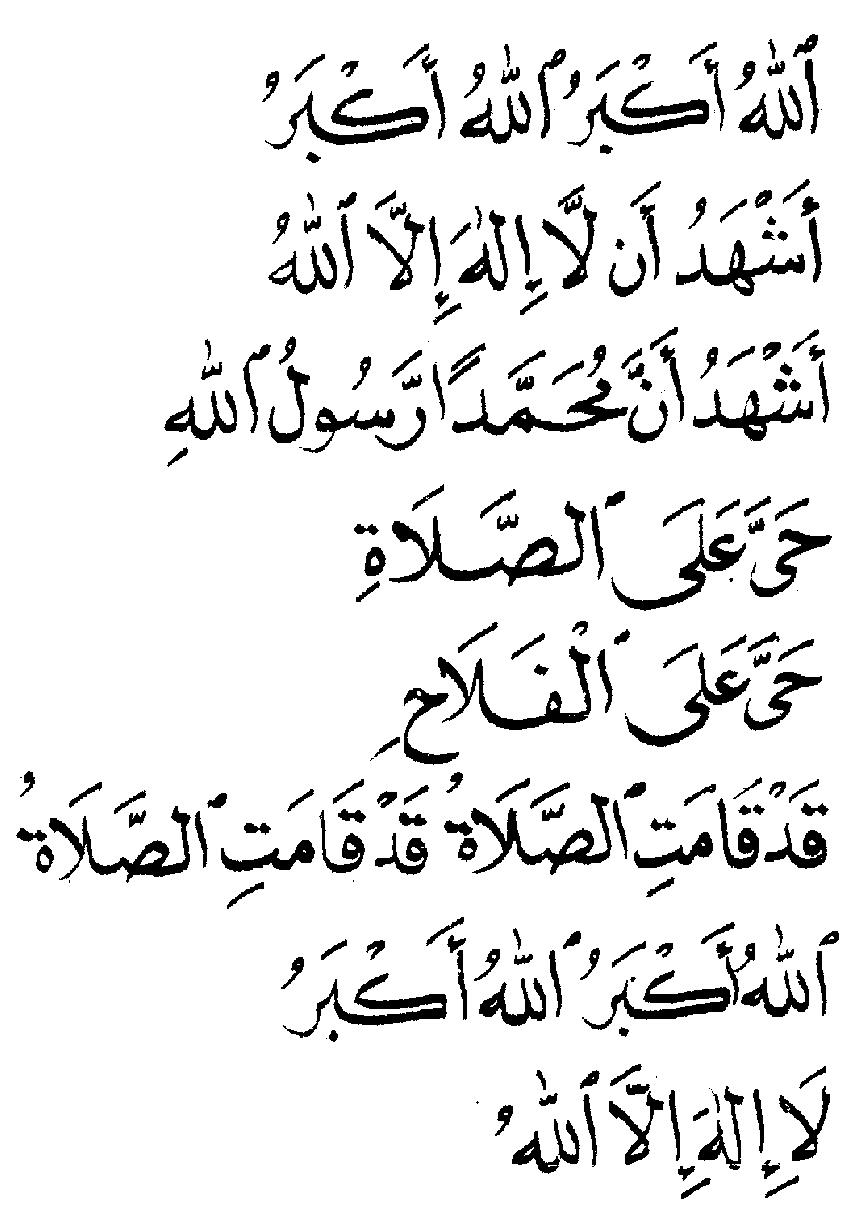 ٱللّٰهُ أَكْبَرُ ٱللّٰهُ أَكْبَرُ
أَشْهَدُ أَن لَّا إِلٰهَ إِلَّا ٱللّٰهُ
أَشْهَدُ أَنَّ مُحَمَّدًا رَّسُولُ ٱللّٰهِ
حَىَّ عَلَى ٱلصَّلَاةِ
حَىَّ عَلَى ٱلْفَلَاحِ
قَدْ قَامَتِ ٱلصَّلَاةُ قَدْ قَامَتِ ٱلصَّلَاةُ
ٱللّٰهُ أَكْبَرُ ٱللّٰهُ أَكْبَرُ
لَا إِلٰهَ إِلَّا ٱللّٰهُ